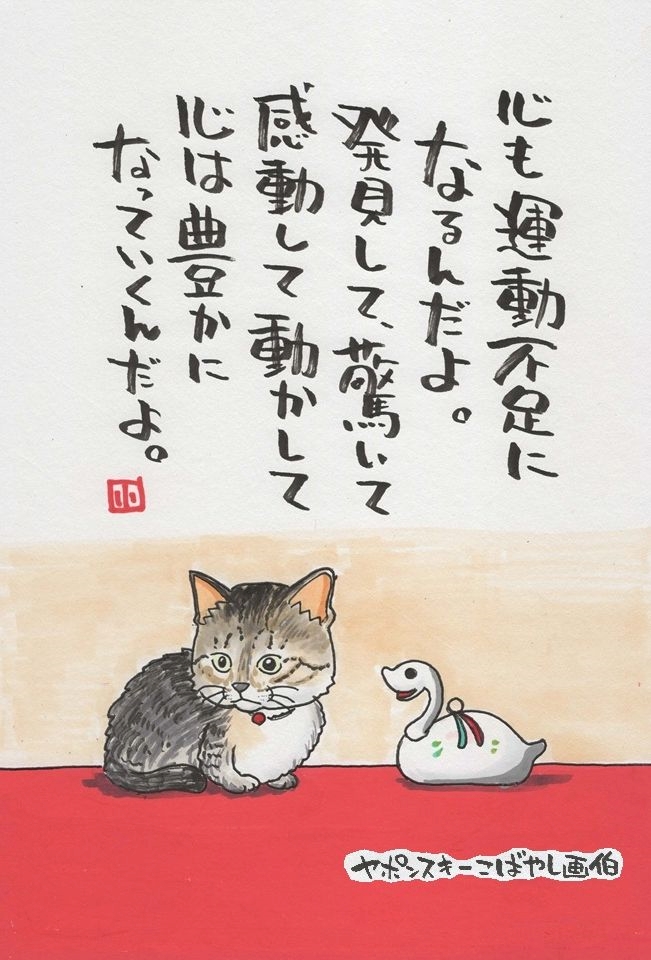 心も運動不足に
なるんだよ。
発見して、驚いて
感動して動かして
心は豊かに
なっていくんだよ。
ヤポンスキーこばやし画伯